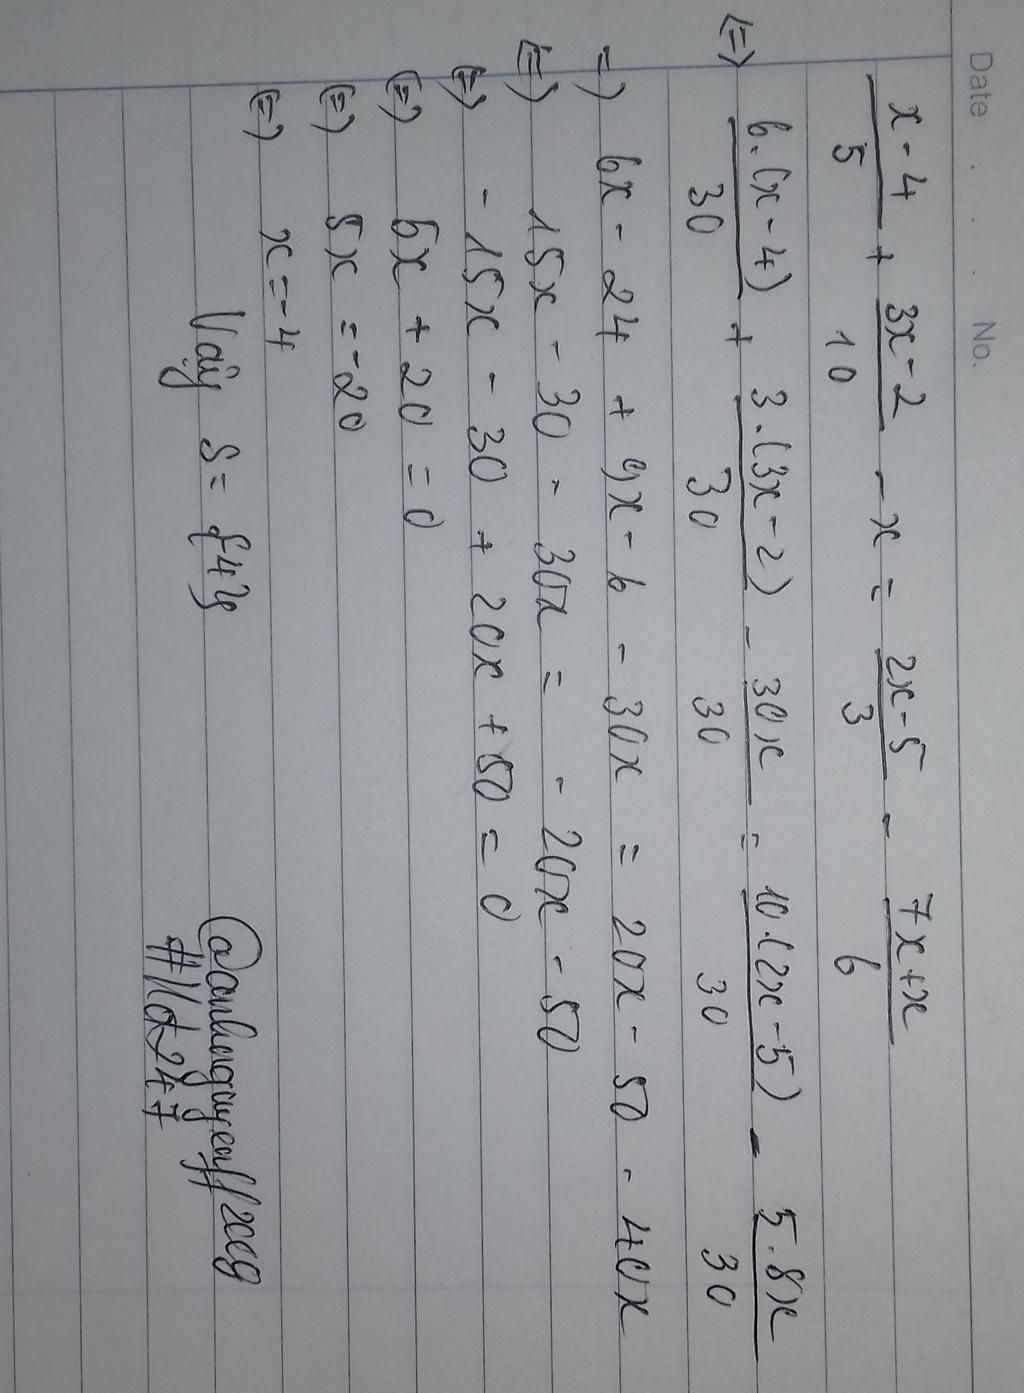 Date . . . No.
x-4/5 + 3x-2/10 - x = 2x-5/3 - 7x+x/6
(=) 6.(x-4)/30 + 3.(3x-2)/30 - 30x/30 = 10.(2x-5)/30 - 5.8x/30
=) 6x - 24 + 9x - 6 - 30x = 20x - 50 - 40x
(=) 15x - 30 - 30x = - 20x - 50
(=) - 15x - 30 + 20x + 50 = 0
(=) 5x + 20 = 0
(=) 5x = -20
(=) x = -4
Vậy S = {4}